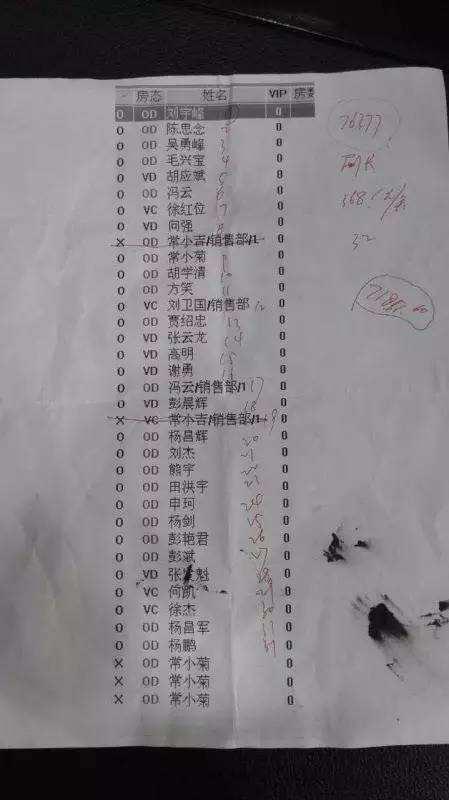 房态 姓名 VIP 房数
O OD 刘宇峰 0
O OD 陈思念 2 0
O OD 吴勇峰 3 0
O OD 毛兴宝 4 0
O VD 胡应斌 5 0
O OD 冯云 6 0
O VC 徐红位 7 0
O VD 何强 0
X OD 常小吉/销售部/1 0
O OD 常小菊 9 0
O OD 胡学清 10 0
O OD 方笑 11 0
O VC 刘卫国/销售部 12 0
O OD 贾绍忠 13 0
O VD 张云龙 14 0
O VD 高明 15 0
O VD 谢勇 0
O OD 冯云/销售部/1 17 0
O VD 彭晨辉 18 0
X VC 常小吉/销售部/1 19 0
O OD 杨昌辉 20 0
O OD 刘杰 21 0
O OD 熊宇 22 0
O OD 田洪宇 23 0
O OD 申珂 24 0
O OD 杨剑 25 0
O OD 彭艳君 26 0
O OD 彭斌 27 0
O VD 张 魁 0
O VC 何凯 0
O VC 徐杰 0
O OD 杨昌军 0
O OD 杨鹏 0
X OD 常小菊 0
X OD 常小菊 0
X OD 常小菊 0
76377
368
32